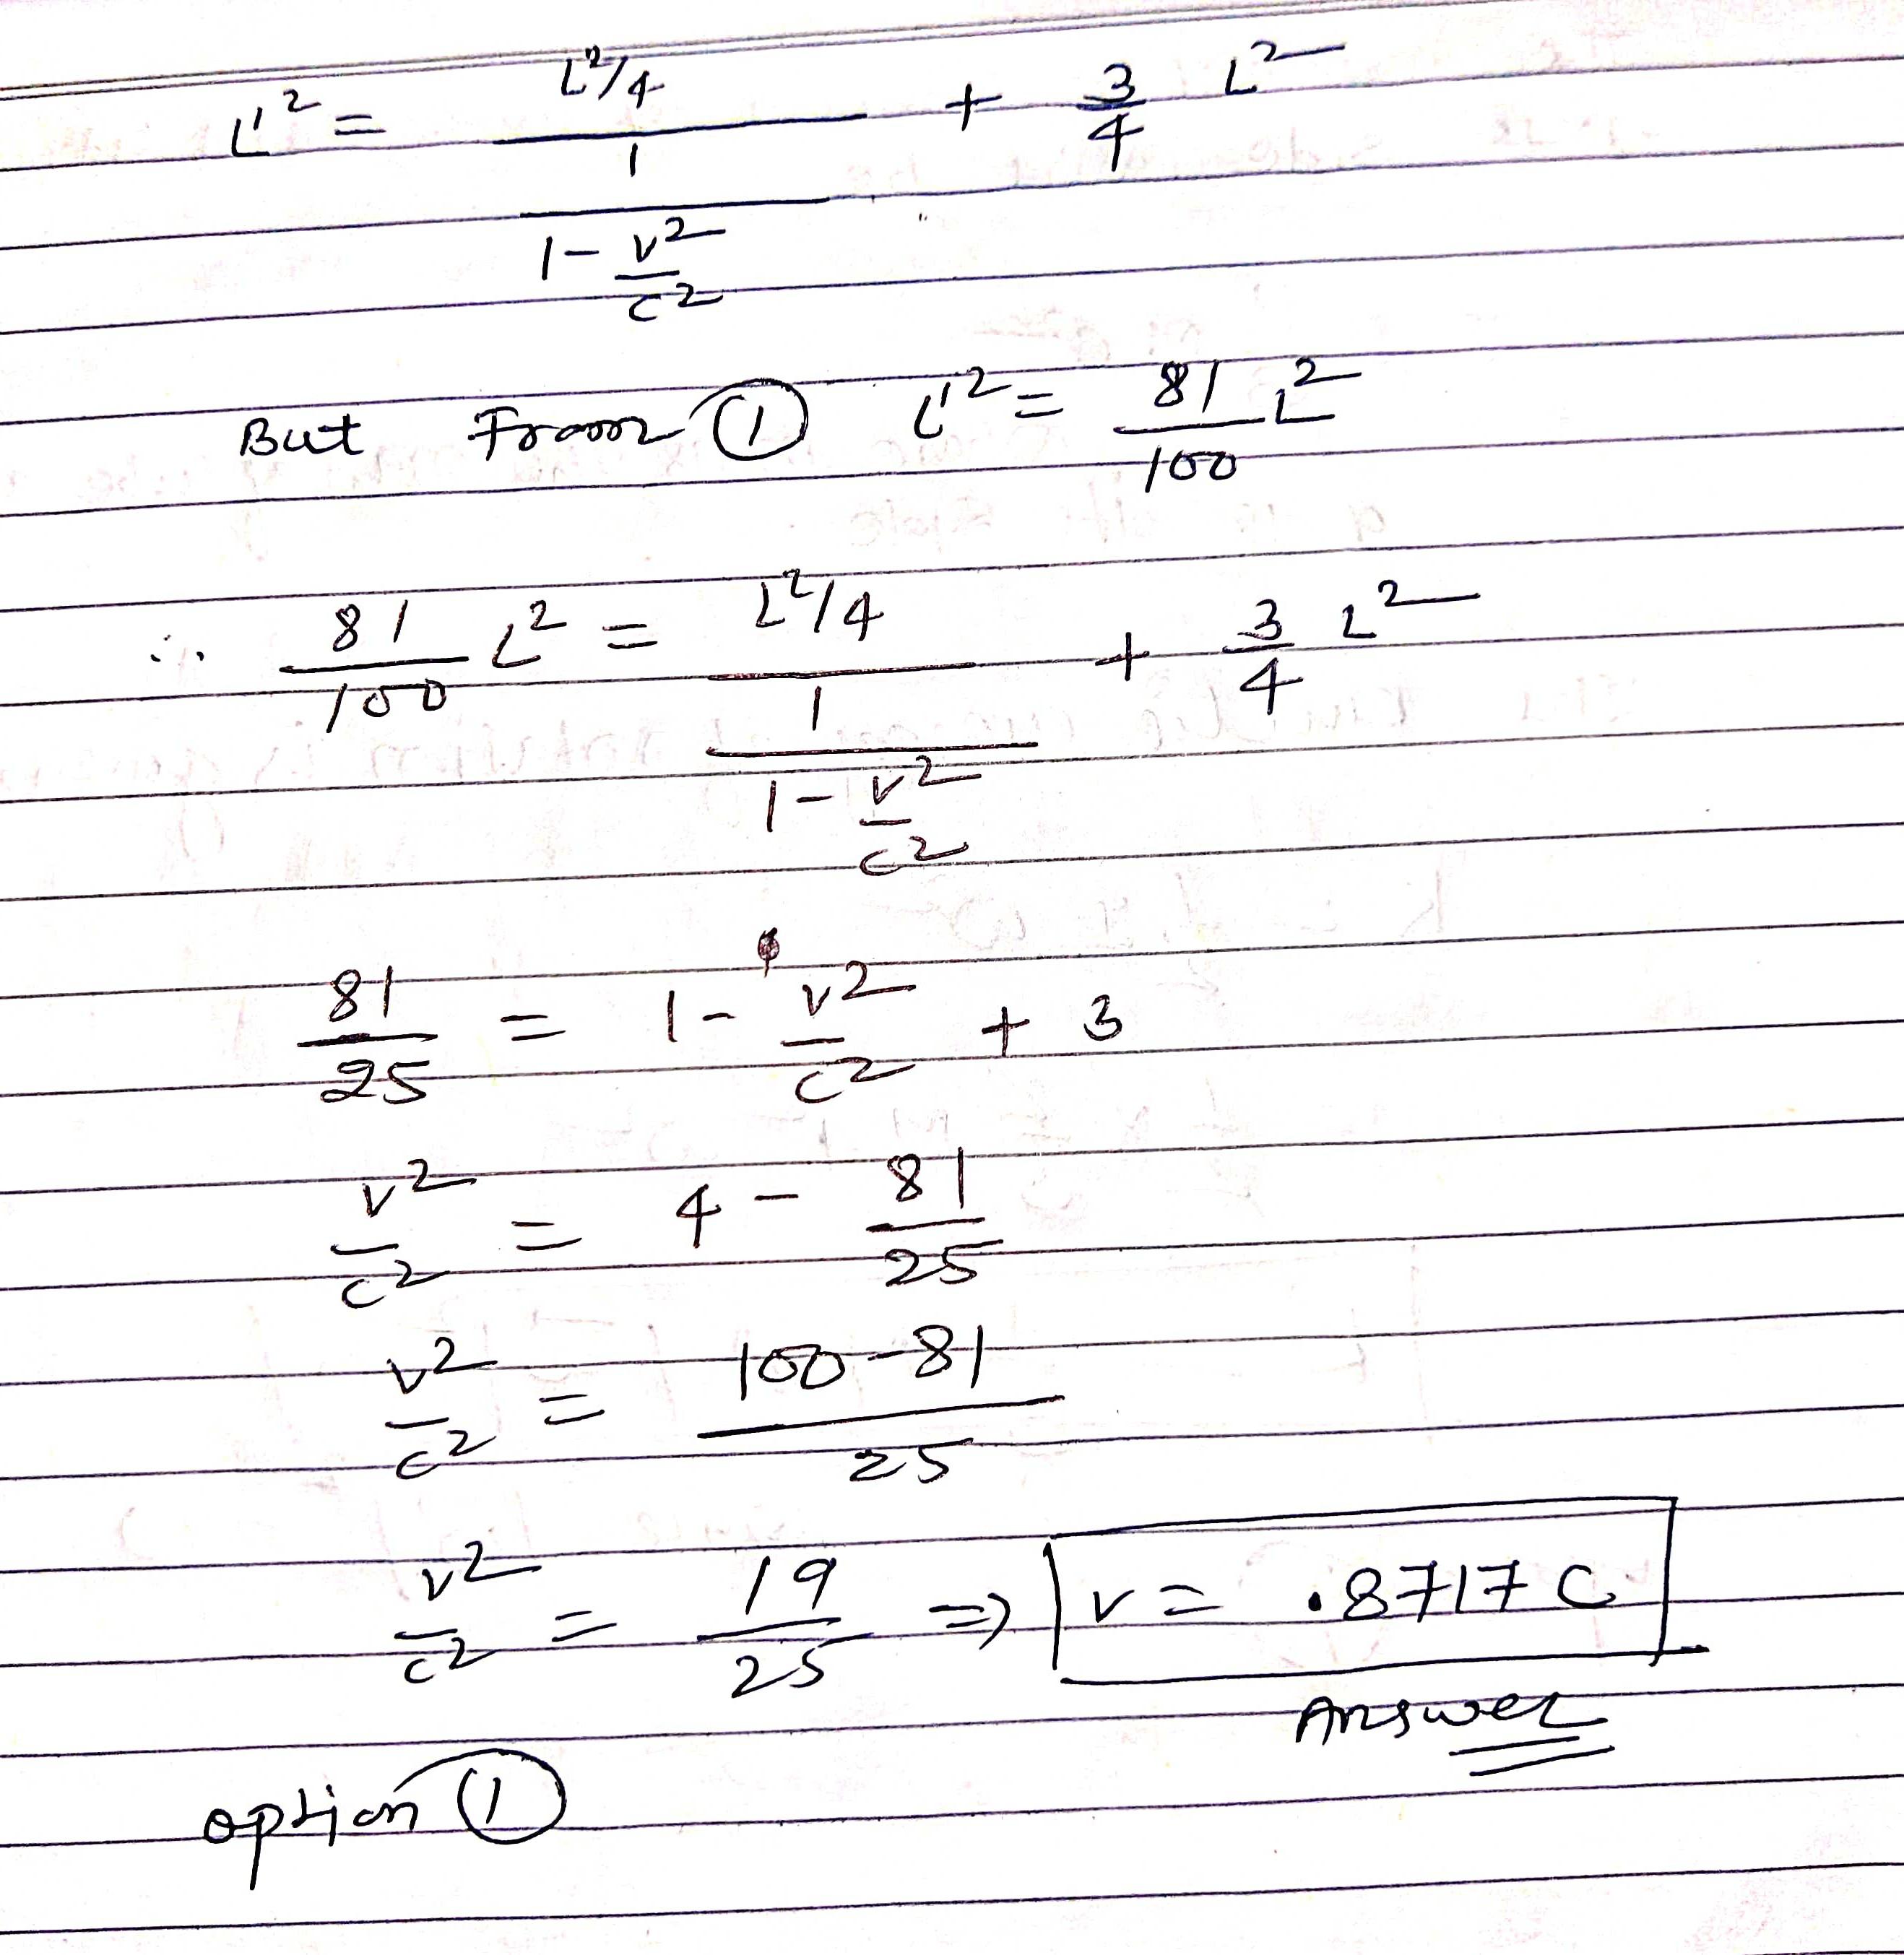 L'² = (L²/4) / (1 / (1 - v²/c²)) + 3/4 L²
But From ① L'² = 81/100 L²
∴ 81/100 L² = (L²/4) / (1 / (1 - v²/c²)) + 3/4 L²
81/25 = 1 - v²/c² + 3
v²/c² = 4 - 81/25
v²/c² = (100-81)/25
v²/c² = 19/25 => v = .8717 C
Answer
option ①